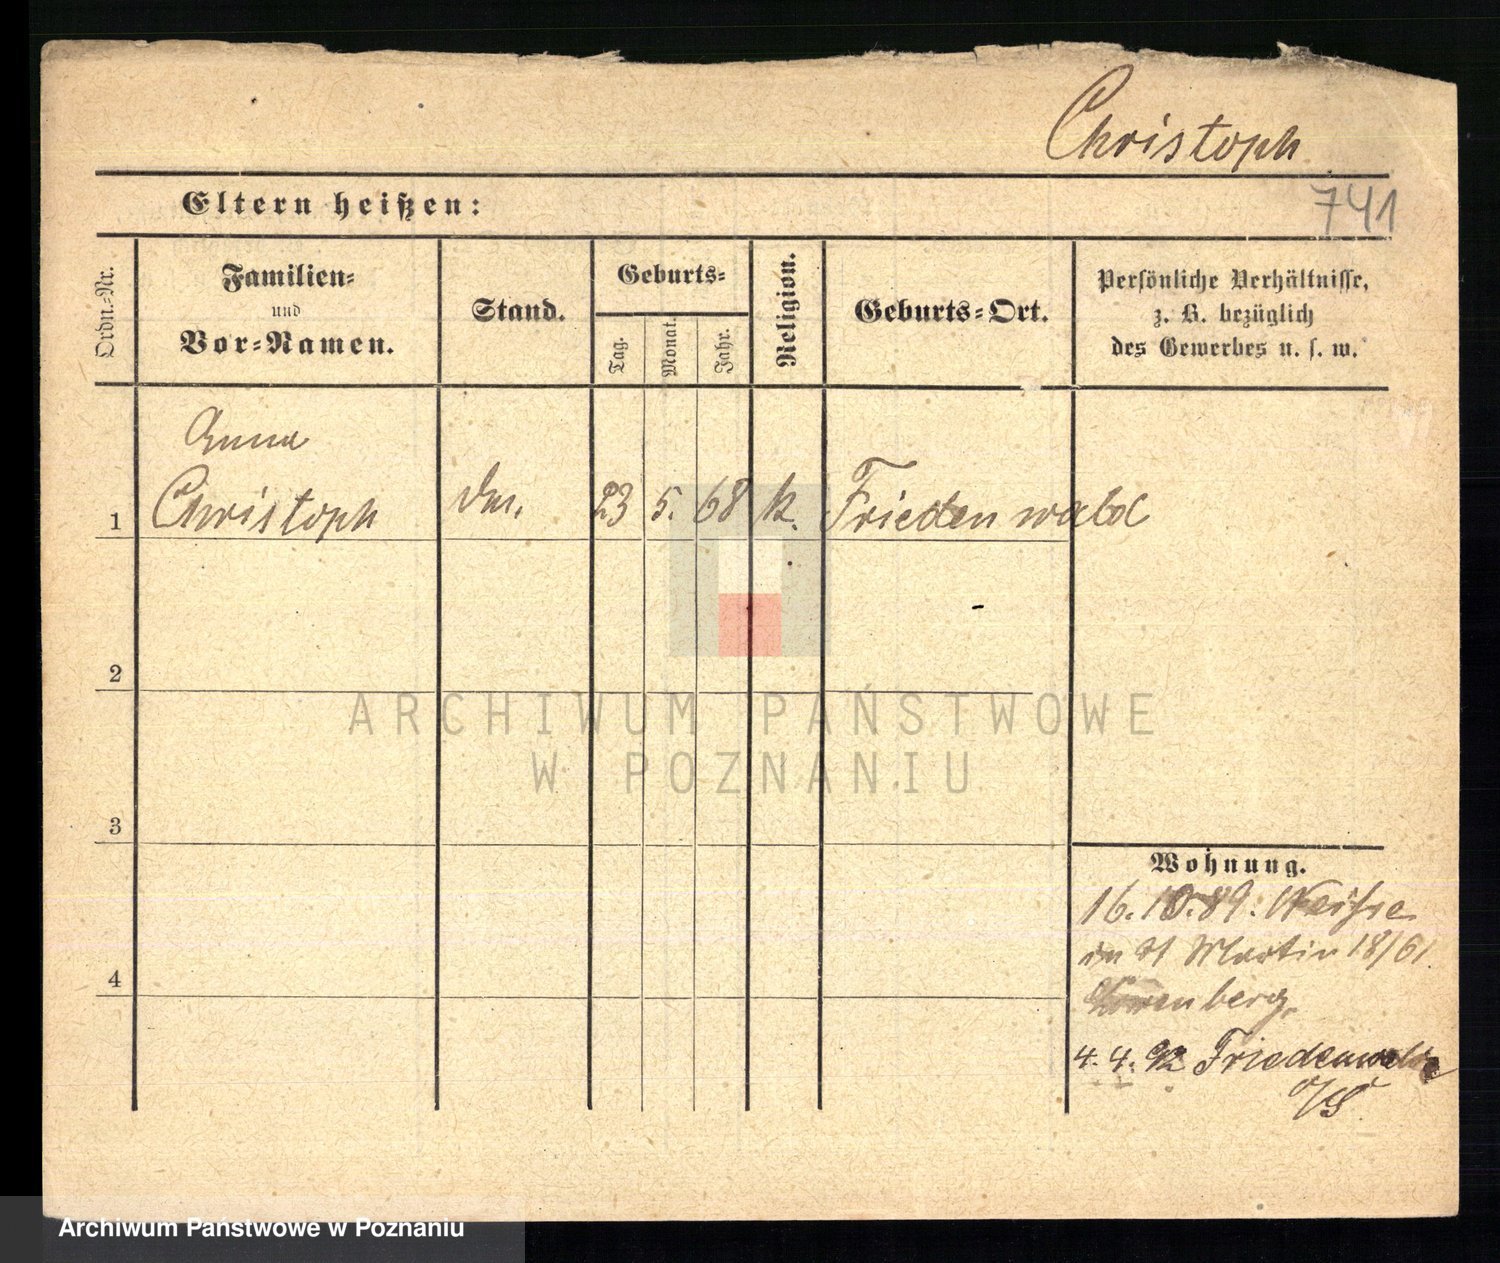 Christoph
Eltern heißen:
741
Ordn.-Nr.
Familien-
und
Vor-Namen.
Stand.
Geburts-
Tag.
Monat.
Jahr.
Religion.
Geburts-Ort.
Persönliche Verhältnisse,
z. B. bezüglich
des Gewerbes u. s. w.
Anna
1 Christoph 23 5. 68 k. Friedenwald
2
ARCHIWUM PAŃSTWOWE
W POZNANIU
3
4
Wohnung.
16. 10. 89. Neisse
St Martin 18/61
4. 4. 92 Friedenwalde
O/S
Archiwum Państwowe w Poznaniu